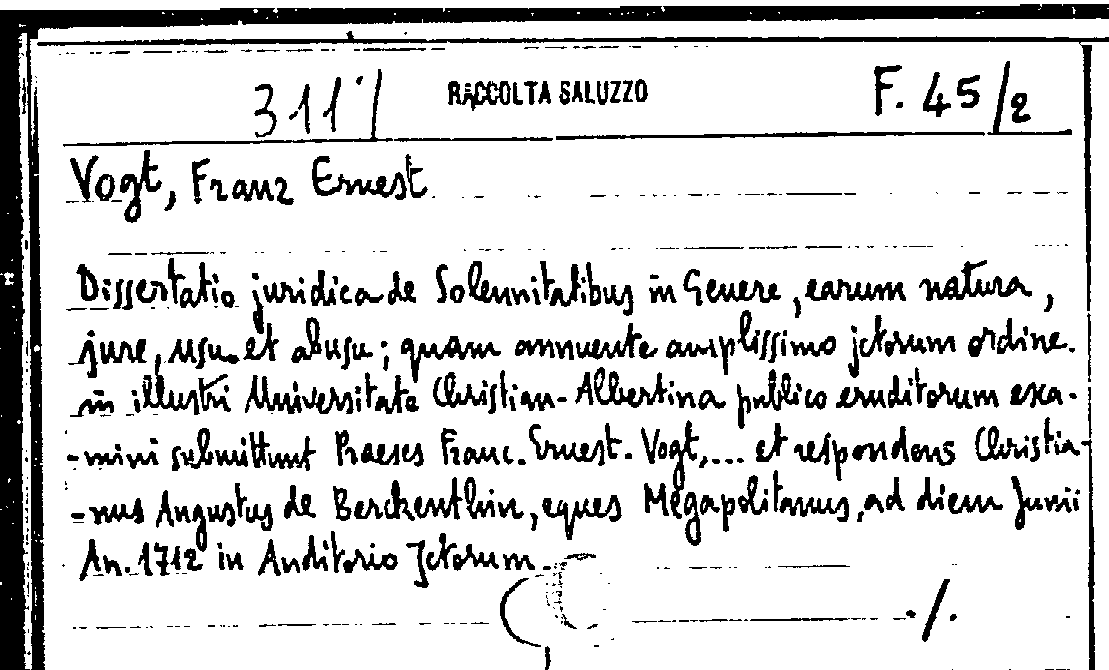 311'/ RACCOLTA SALUZZO F. 45/2
Vogt, Franz Ernest
Dissertatio juridica de Solennitatibus in Genere, earum natura,
jure, usu et abusu; quam annuente amplissimo jctorum ordine.
in illustri Universitate Christian-Albertina publico eruditorum exa-
-mini submittunt Praeses Franc. Ernest. Vogt,... et respondens Christia-
-nus Augustus de Berckenthin, eques Megapolitanus, ad diem Junii
An. 1712 in Auditorio Jctorum.
./.